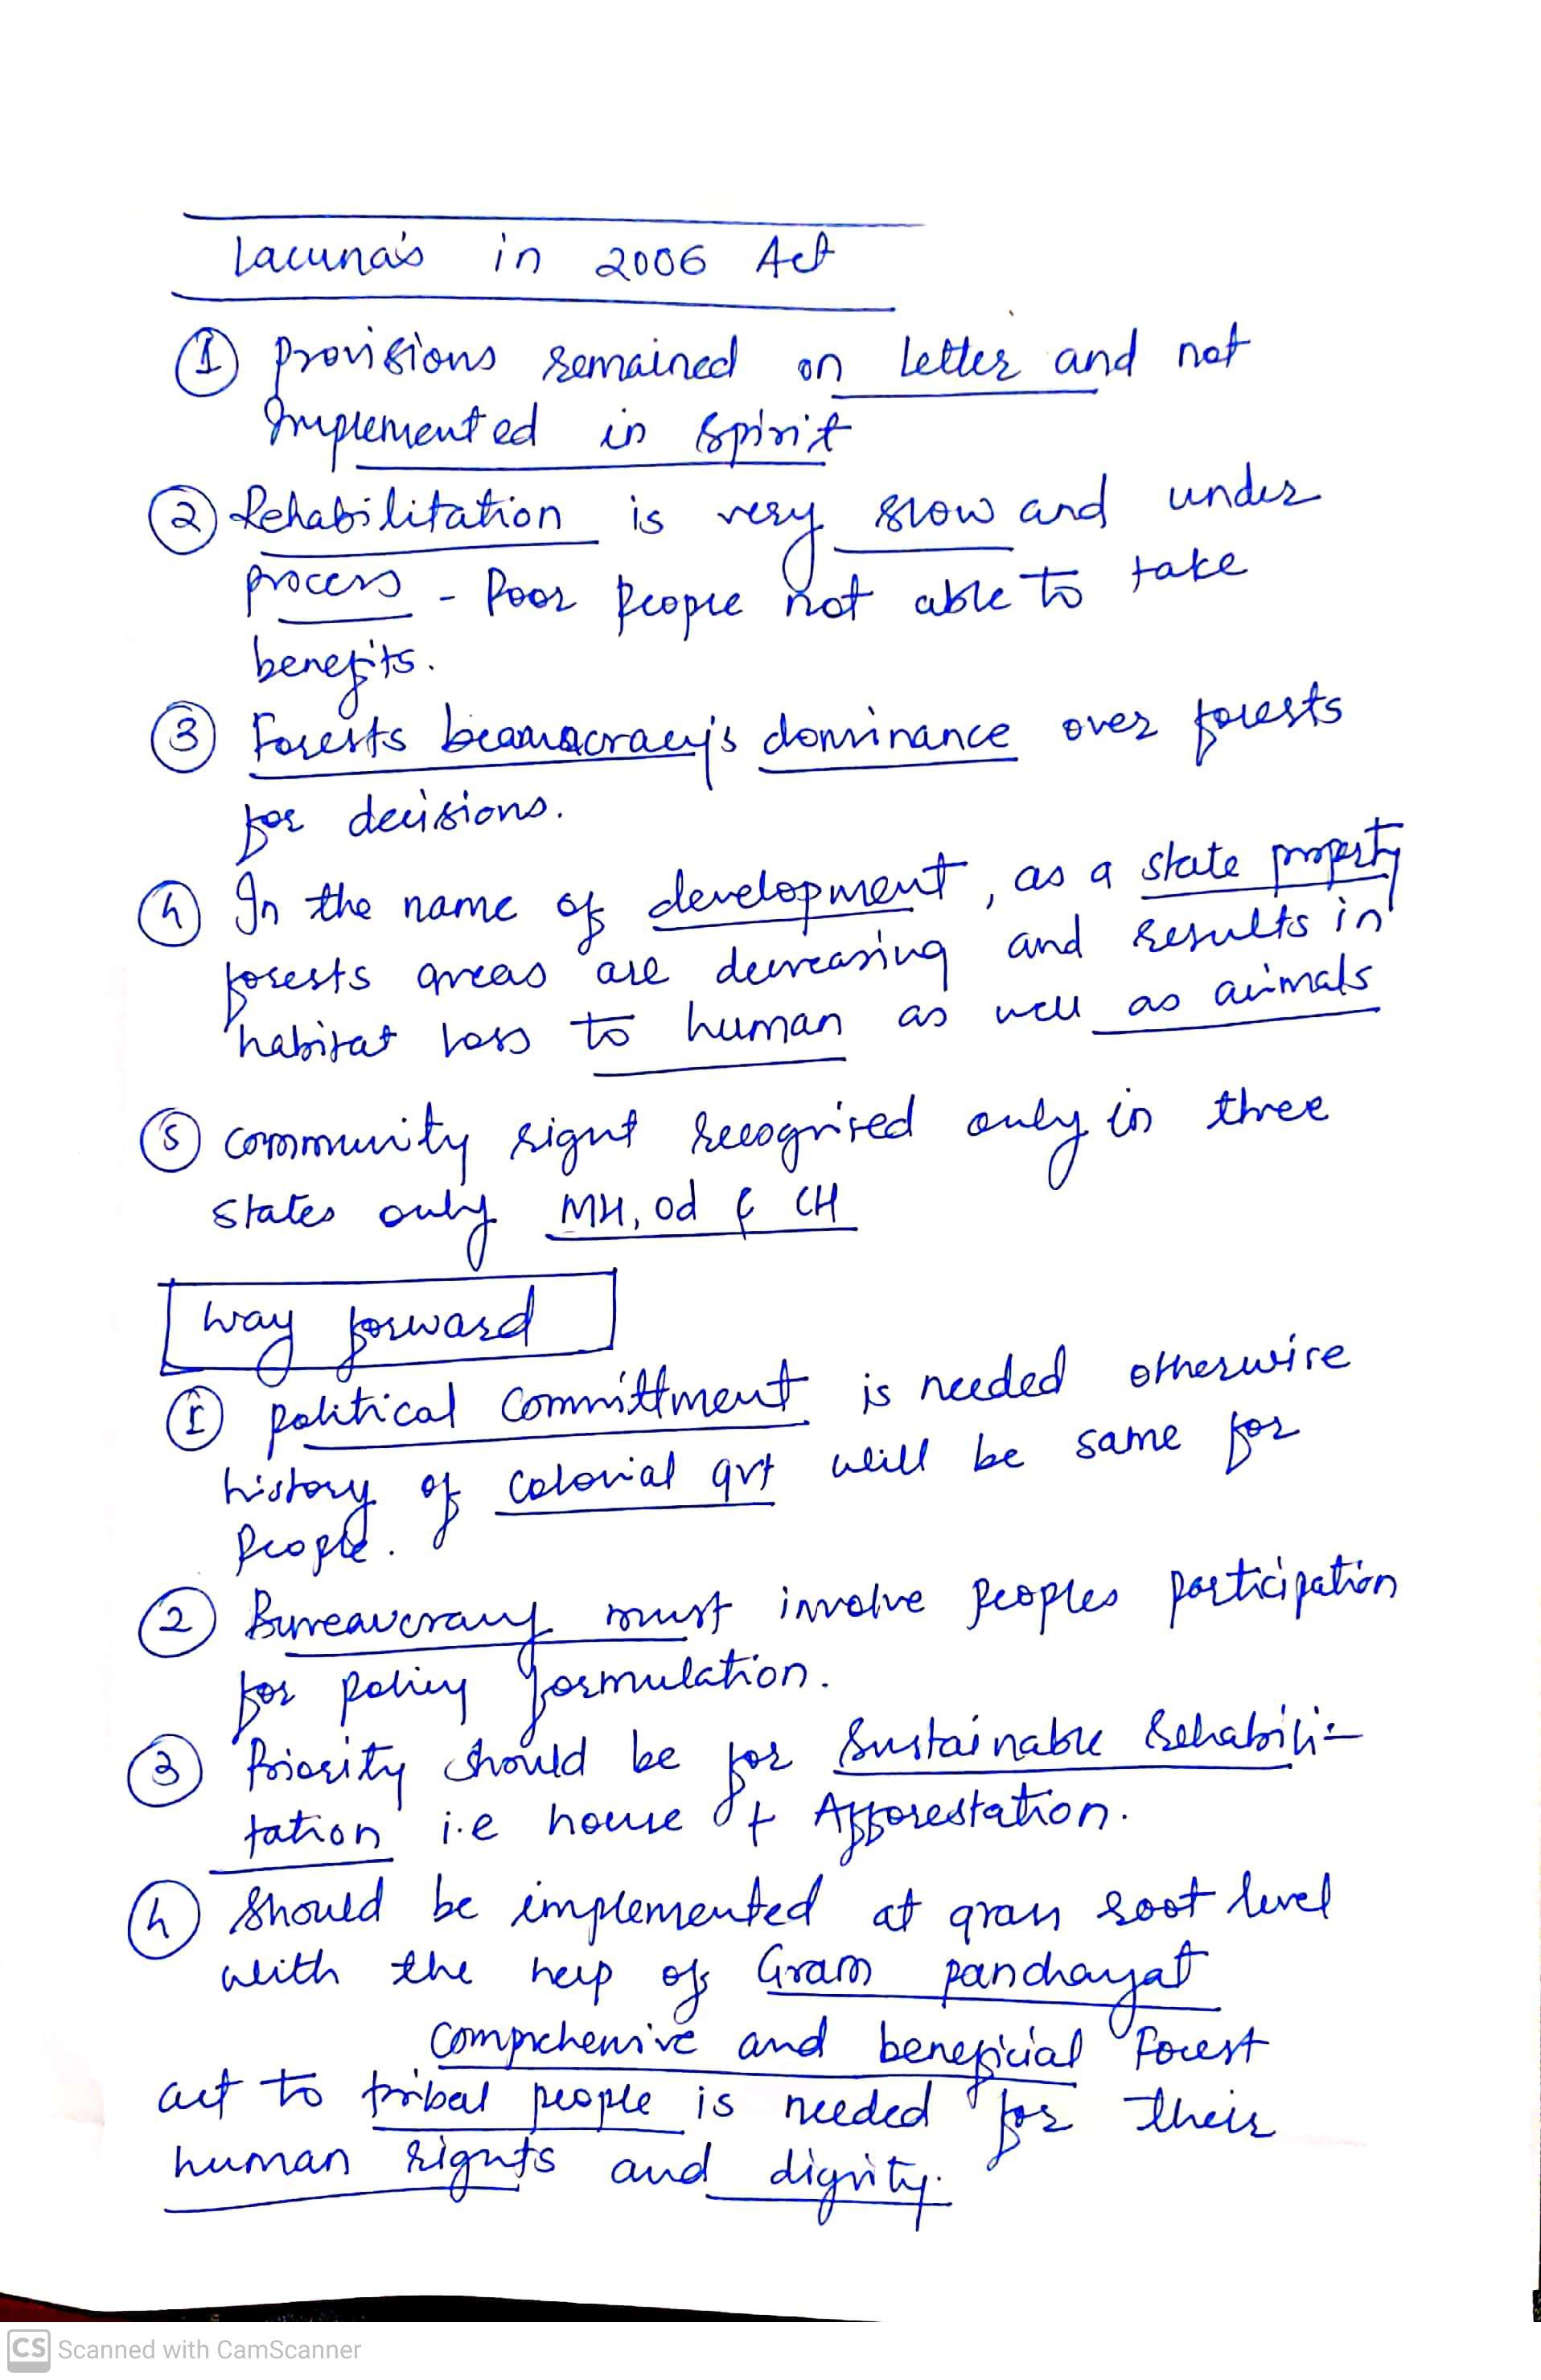 Lacuna's in 2006 Act
① provisions remained on letter and not
Implemented in spirit
② Rehabilitation is very slow and under
process - Poor people not able to take
benefits.
③ Forests beauracracy's dominance over forests
for decisions.
④ In the name of development, as a state property
forests areas are decreasing and results in
habitat loss to human as well as animals
⑤ community right recognised only in three
states only MH, Od & CH
Way forward
① political committment is needed otherwise
history of colonial gvt will be same for
people.
② Bureaucracy must involve peoples participation
for policy formulation.
③ Priority should be for sustainable rehabili-
tation i.e house & Afforestation.
④ Should be implemented at grass root level
with the help of Gram panchayat
comprehensive and beneficial Forest
act to tribal people is needed for their
human rights and dignity.
CS Scanned with CamScanner